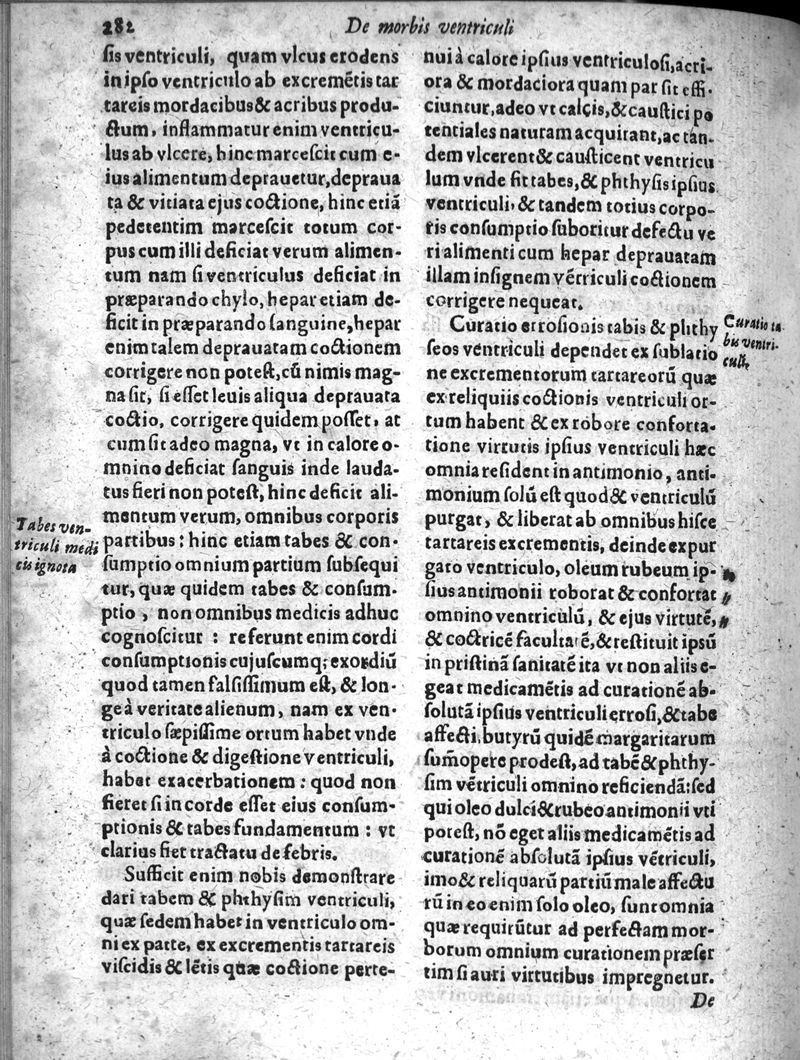 282
De morbis ventriculi
ſis ventriculi, quam vlcus erodens
in ipſo ventriculo ab excremētis tar
tareis mordacibus & acribus produ-
ctum, inflammatur enim ventricu-
lus ab vlcere, hinc marceſcit cum e-
ius alimentum deprauetur, depraua
ta & vitiata ejus coctione, hinc etiā
pedetentim marceſcit totum cor-
pus cum illi deficiat verum alimen-
tum nam ſi ventriculus deficiat in
præparando chylo, hepar etiam de-
ficit in præparando ſanguine, hepar
enim talem deprauatam coctionem
corrigere non poteſt, cū nimis mag-
na ſit, ſi eſſet leuis aliqua deprauata
coctio, corrigere quidem poſſet, at
cum ſit adeo magna, vt in calore o-
mnino deficiat ſanguis inde lauda-
tus fieri non poteſt, hinc deficit ali-
mentum verum, omnibus corporis
partibus: hinc etiam tabes & con-
ſumptio omnium partium ſubſequi
tur, quæ quidem tabes & conſum-
ptio, non omnibus medicis adhuc
cognoſcitur: referunt enim cordi
conſumptionis cujuſcumq; exordiū
quod tamen falſiſſimum eſt, & lon-
ge à veritate alienum, nam ex ven-
triculo ſæpiſſime ortum habet vnde
à coctione & digeſtione ventriculi,
habet exacerbationem: quod non
fieret ſi in corde eſſet eius conſum-
ptionis & tabes fundamentum: vt
clarius fiet tractatu de febris.
Sufficit enim nobis demonſtrare
dari tabem & phthyſim ventriculi,
quæ ſedem habet in ventriculo om-
ni ex parte, ex excrementis tartareis
viſcidis & lētis quæ coctione perte-
Tabes ven-
triculi medi
cis ignota
nui à calore ipſius ventriculoſi, acri-
ora & mordaciora quam par ſit effi-
ciuntur, adeo vt calcis, & cauſtici po
tentiales naturam acquirant, ac tan-
dem vlcerent & cauſticent ventricu
lum vnde fit tabes, & phthyſis ipſius
ventriculi, & tandem totius corpo-
ris conſumptio ſuboritur defectu ve
ri alimenti cum hepar deprauatam
illam inſignem vētriculi coctionem
corrigere nequeat.
Curatio erroſionis tabis & phthy
ſeos ventriculi dependet ex ſublatio
ne excrementorum tartareorū quæ
ex reliquiis coctionis ventriculi or-
tum habent & ex robore conforta-
tione virtutis ipſius ventriculi hæc
omnia reſident in antimonio, anti-
monium ſolū eſt quod & ventriculū
purgat, & liberat ab omnibus hiſce
tartareis excrementis, deinde expur
gato ventriculo, oleum rubeum ip-
ſius antimonii roborat & confortat
omnino ventriculū, & ejus virtutē,
& coctricē facultatē, & reſtituit ipsū
in priſtinā ſanitatē ita vt non aliis e-
geat medicamētis ad curationē ab-
ſolutā ipſius ventriculi erroſi, & tabe
affecti, butyrū quidē margaritarum
ſum̄opere prodeſt, ad tabē & phthy-
ſim vētriculi omnino reficiendā: ſed
qui oleo dulci & rubeo antimonii vti
poteſt, nō eget aliis medicamētis ad
curationē abſolutā ipſius vētriculi,
imo & reliquarū partiū male affectu
rū in eo enim ſolo oleo, ſunt omnia
quæ requirūtur ad perfectam mor-
borum omnium curationem præſer
tim ſi auri virtutibus impregnetur.
Curatio ta
bis ventri-
culi,
De